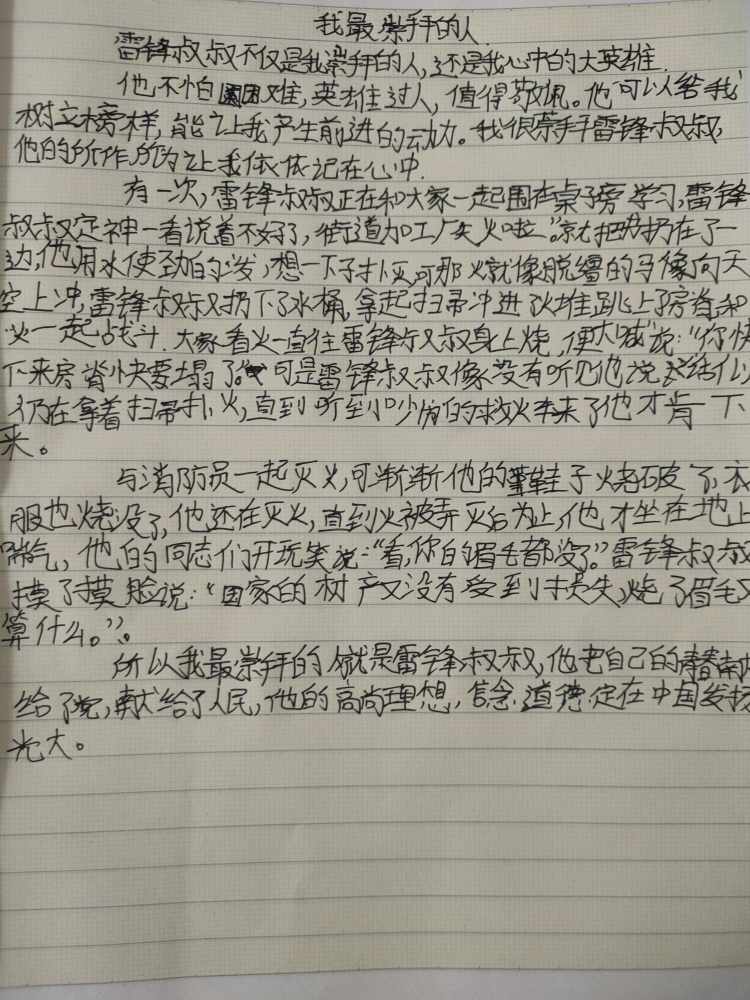 我最崇拜的人
雷锋叔叔不仅是我崇拜的人,还是我心中的大英雄.
他不怕困难,英雄过人,值得敬佩。他可以给我
树立榜样,能让我产生前进的动力。我很崇拜雷锋叔叔,
他的所作所为让我依依记在心中.
有一次,雷锋叔叔正在和大家一起围在桌子旁学习,雷锋
叔叔定神一看说着不好了,街道加工厂失火啦”。就把书扔在了一
边,他用水使劲的泼,想一下子扑灭,可那火就像脱缰的马像向天
空上冲,雷锋叔叔又扔下了水桶,拿起扫帚冲进火堆跳上了房脊和
火一起战斗.大家看火一直往雷锋叔叔身上烧,便大喊说:“你快
下来房脊快要塌了。可是雷锋叔叔像没有听见他说这话似
仍在拿着扫帚扑火,直到听到的救火车来了他才肯下
来。
与消防员一起灭火,可渐渐他的鞋子烧破了,衣
服也烧没了,他还在灭火,直到火被弄灭后为止,他才坐在地上
喘气,他的同志们开玩笑说:“看,你的眉毛都没了。”雷锋叔叔
摸了摸脸说:“国家的材产又没有受到损失,烧了眉毛又
算什么。”。
所以我最崇拜的人就是雷锋叔叔,他把自己的青春献
给了党,献给了人民,他的高尚理想,信念.道德.定在中国发扬
光大。